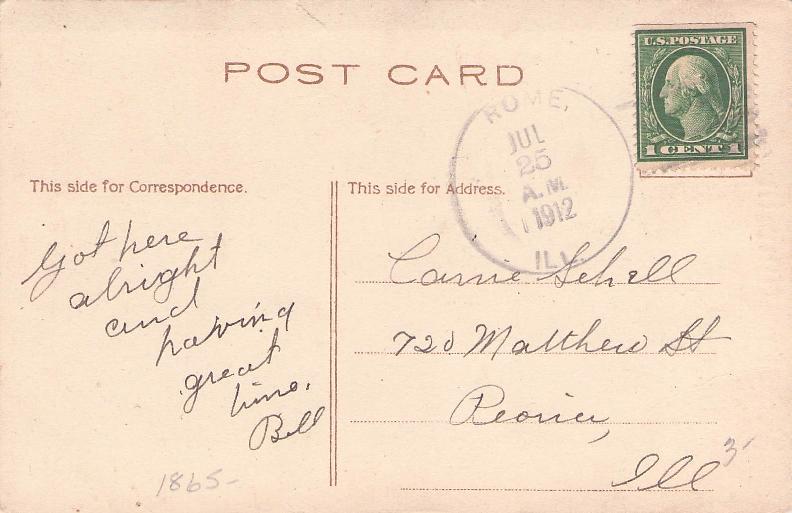 POST CARD
U.S. POSTAGE
1 CENT 1
ROME,
JUL
25
A.M.
1912
ILL.
This side for Correspondence.
This side for Address.
Got here
alright
and
having
great
time.
Bill
Carrie Schell
720 Matthew St
Peoria,
Ill
3-
1865-